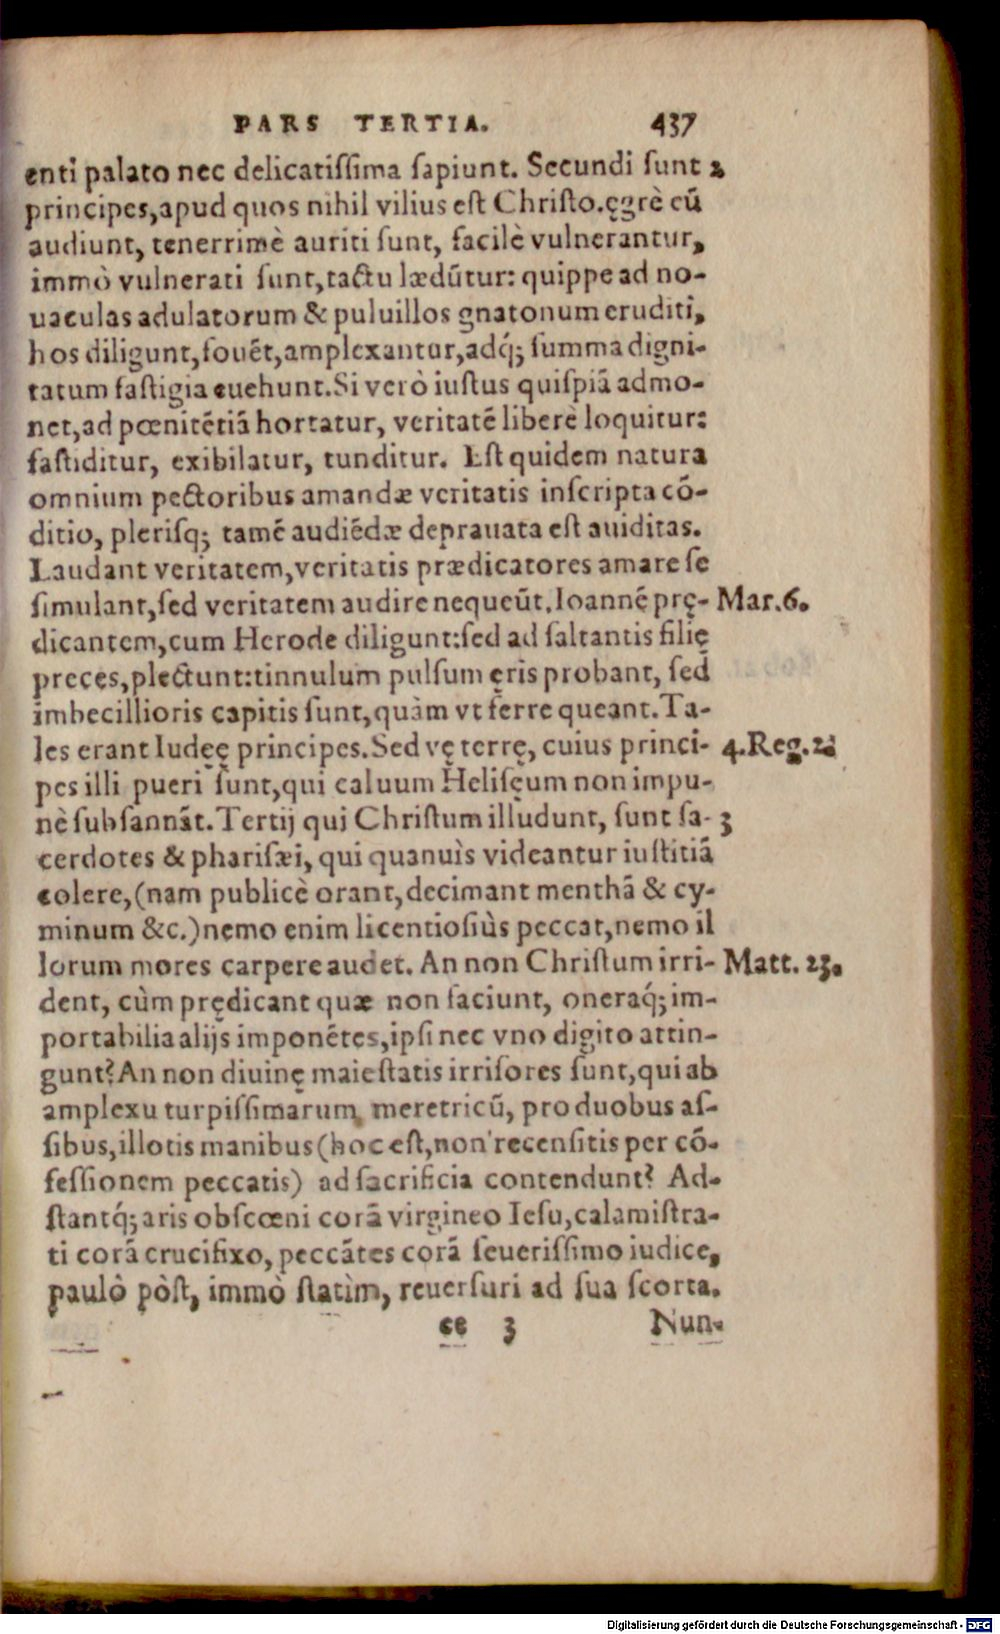 PARS TERTIA. 437
enti palato nec delicatissima sapiunt. Secundi sunt 2
principes, apud quos nihil vilius est Christo. ęgrè cū
audiunt, tenerrimè auriti sunt, facilè vulnerantur,
immò vulnerati sunt, tactu lædūtur: quippe ad no-
uaculas adulatorum & puluillos gnatonum eruditi,
hos diligunt, fouēt, amplexantur, adq́; summa digni-
tatum fastigia euehunt. Si verò iustus quispiā admo-
net, ad pœnitētiā hortatur, veritatē liberè loquitur:
fastiditur, exibilatur, tunditur. Est quidem natura
omnium pectoribus amandæ veritatis inscripta cō-
ditio, plerisq; tamē audiēdæ deprauata est auiditas.
Laudant veritatem, veritatis prædicatores amare se
simulant, sed veritatem audire nequeūt. Ioannē prę- Mar. 6.
dicantem, cum Herode diligunt: sed ad saltantis filię
preces, plectunt: tinnulum pulsum ęris probant, sed
imbecillioris capitis sunt, quàm vt ferre queant. Ta-
les erant Iudęę principes. Sed vę terrę, cuius princi- 4. Reg. 2.
pes illi pueri sunt, qui caluum Helisęum non impu-
nè subsannāt. Tertij qui Christum illudunt, sunt sa- 3
cerdotes & pharisæi, qui quanuìs videantur iustitiā
colere, (nam publicè orant, decimant menthā & cy-
minum &c.) nemo enim licentiosiùs peccat, nemo il
lorum mores carpere audet. An non Christum irri- Matt. 23.
dent, cùm prędicant quæ non faciunt, oneraq́; im-
portabilia alijs imponētes, ipsi nec vno digito attin-
gunt? An non diuinę maiestatis irrisores sunt, qui ab
amplexu turpissimarum meretricū, pro duobus as-
sibus, illotis manibus (hoc est, non recensitis per cō-
fessionem peccatis) ad sacrificia contendunt? Ad-
stantq́; aris obscœni corā virgineo Iesu, calamistra-
ti corā crucifixo, peccātes corā seuerissimo iudice,
paulò pòst, immò statìm, reuersuri ad sua scorta.
ee 3 Nun-
Digitalisierung gefördert durch die Deutsche Forschungsgemeinschaft - DFG